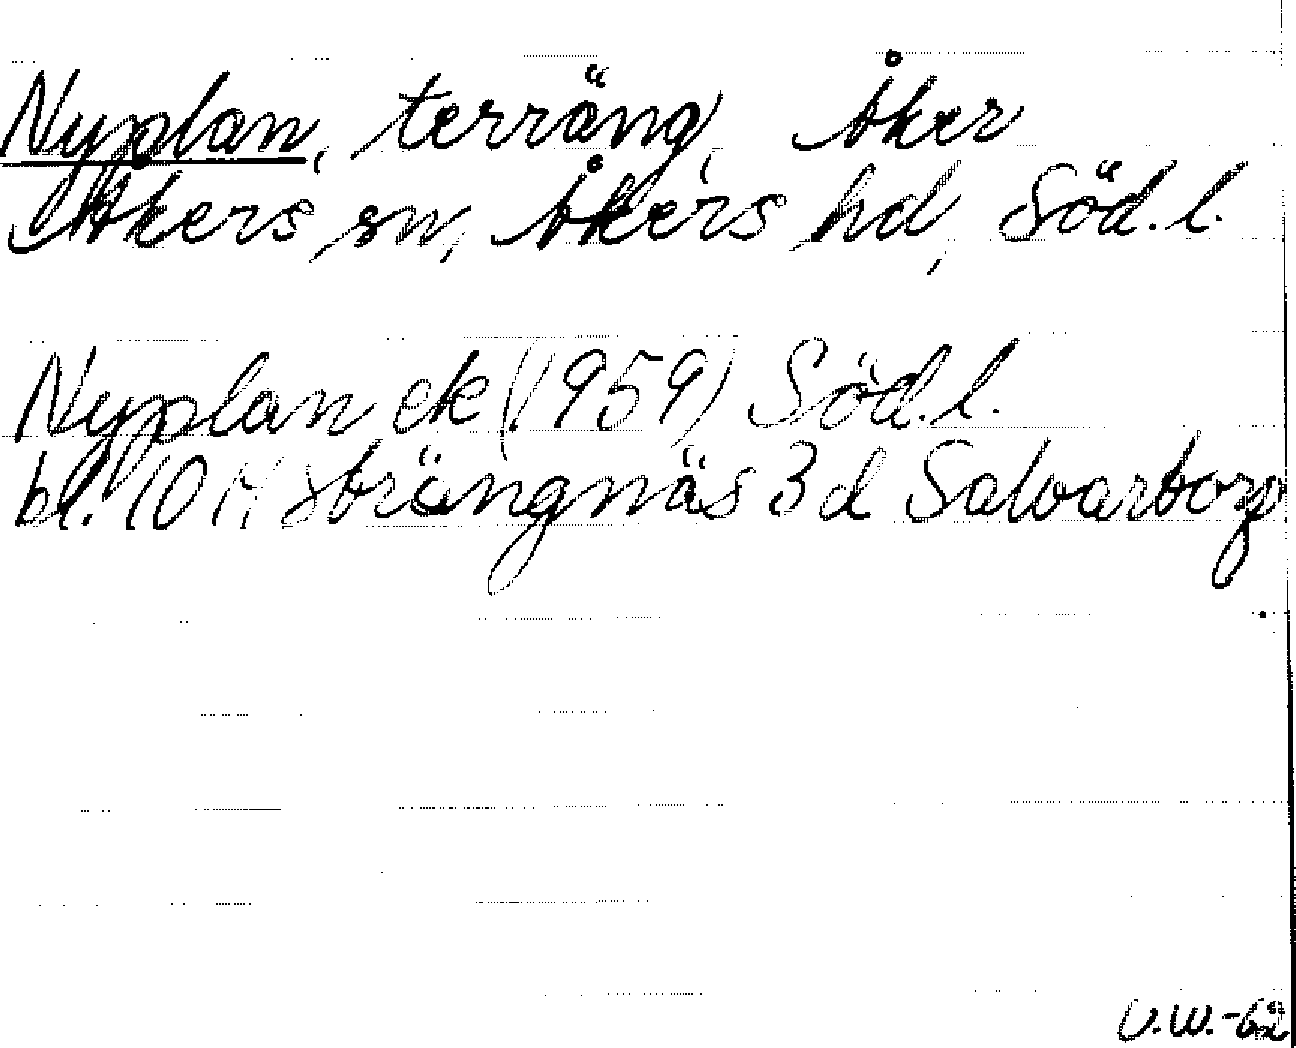 Nyplan, terräng, Åker
Åkers sn, Åkers hd, Söd.l.
Nyplan ek (1959) Söd.l.
bl. 10 H Strängnäs 3 d Salvartorp
U.W.-62